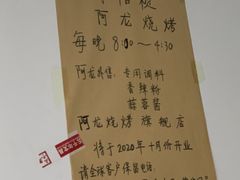 阿龙烧烤
每晚 8:00~4:30
阿龙外售: 专用调料
香辣粉
蒜蓉酱
阿龙烧烤 旗舰店
将于2020年十月份开业
请全球客户保留电话